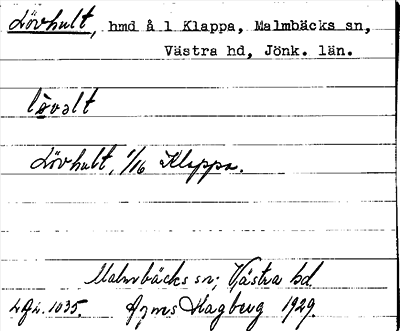 Lövhult, hmd å 1 Klappa, Malmbäcks sn,
Västra hd, Jönk. län.
lövəlt
Lövhult, 1/16 Klappa.
Malmbäcks sn; Västra hd
1035. Agnes Hagberg 1929.